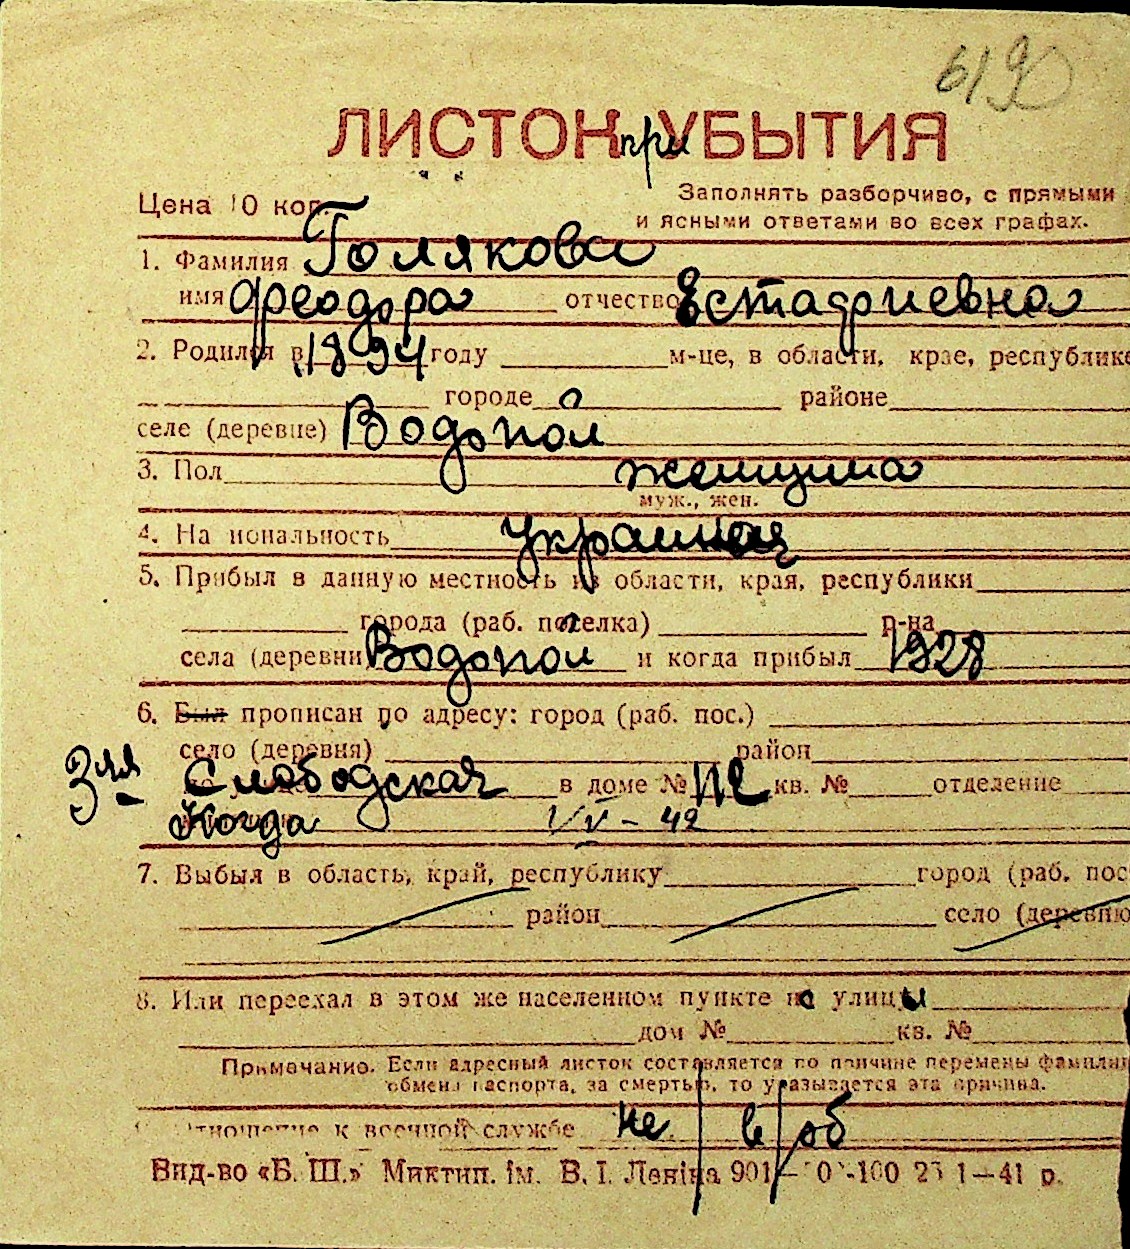 6190
ЛИСТОК при УБЫТИЯ
Цена 10 коп.
Заполнять разборчиво, с прямыми
и ясными ответами во всех графах.
1. Фамилия Голякова
имя Феодора отчество Естафиевна
2. Родился в 1894 году м-це, в области, крае, республике
городе районе
селе (деревне) Водопой
3. Пол женщина
муж., жен.
4. На иональность украинка
5. Прибыл в данную местность из области, края, республики
города (раб. поселка) р-на
села (деревни Водопой и когда прибыл 1928
6. Был прописан по адресу: город (раб. пос.)
село (деревня) район
3яя Слободская в доме № 112 кв. № отделение
Когда 1/VI - 42
7. Выбыл в область, край, республику город (раб. пос
район село (деревню
8. Или переехал в этом же населенном пункте на улицы
дом № кв. №
Примечание. Если адресный листок составляется по причине перемены фамилии
обмена паспорта, за смертью, то указывается эта причина.
тношение к военной службе не в/об
Вид-во «Б. Ш.» Миктип. ім. В. І. Леніна 901 100 23 1—41 р.